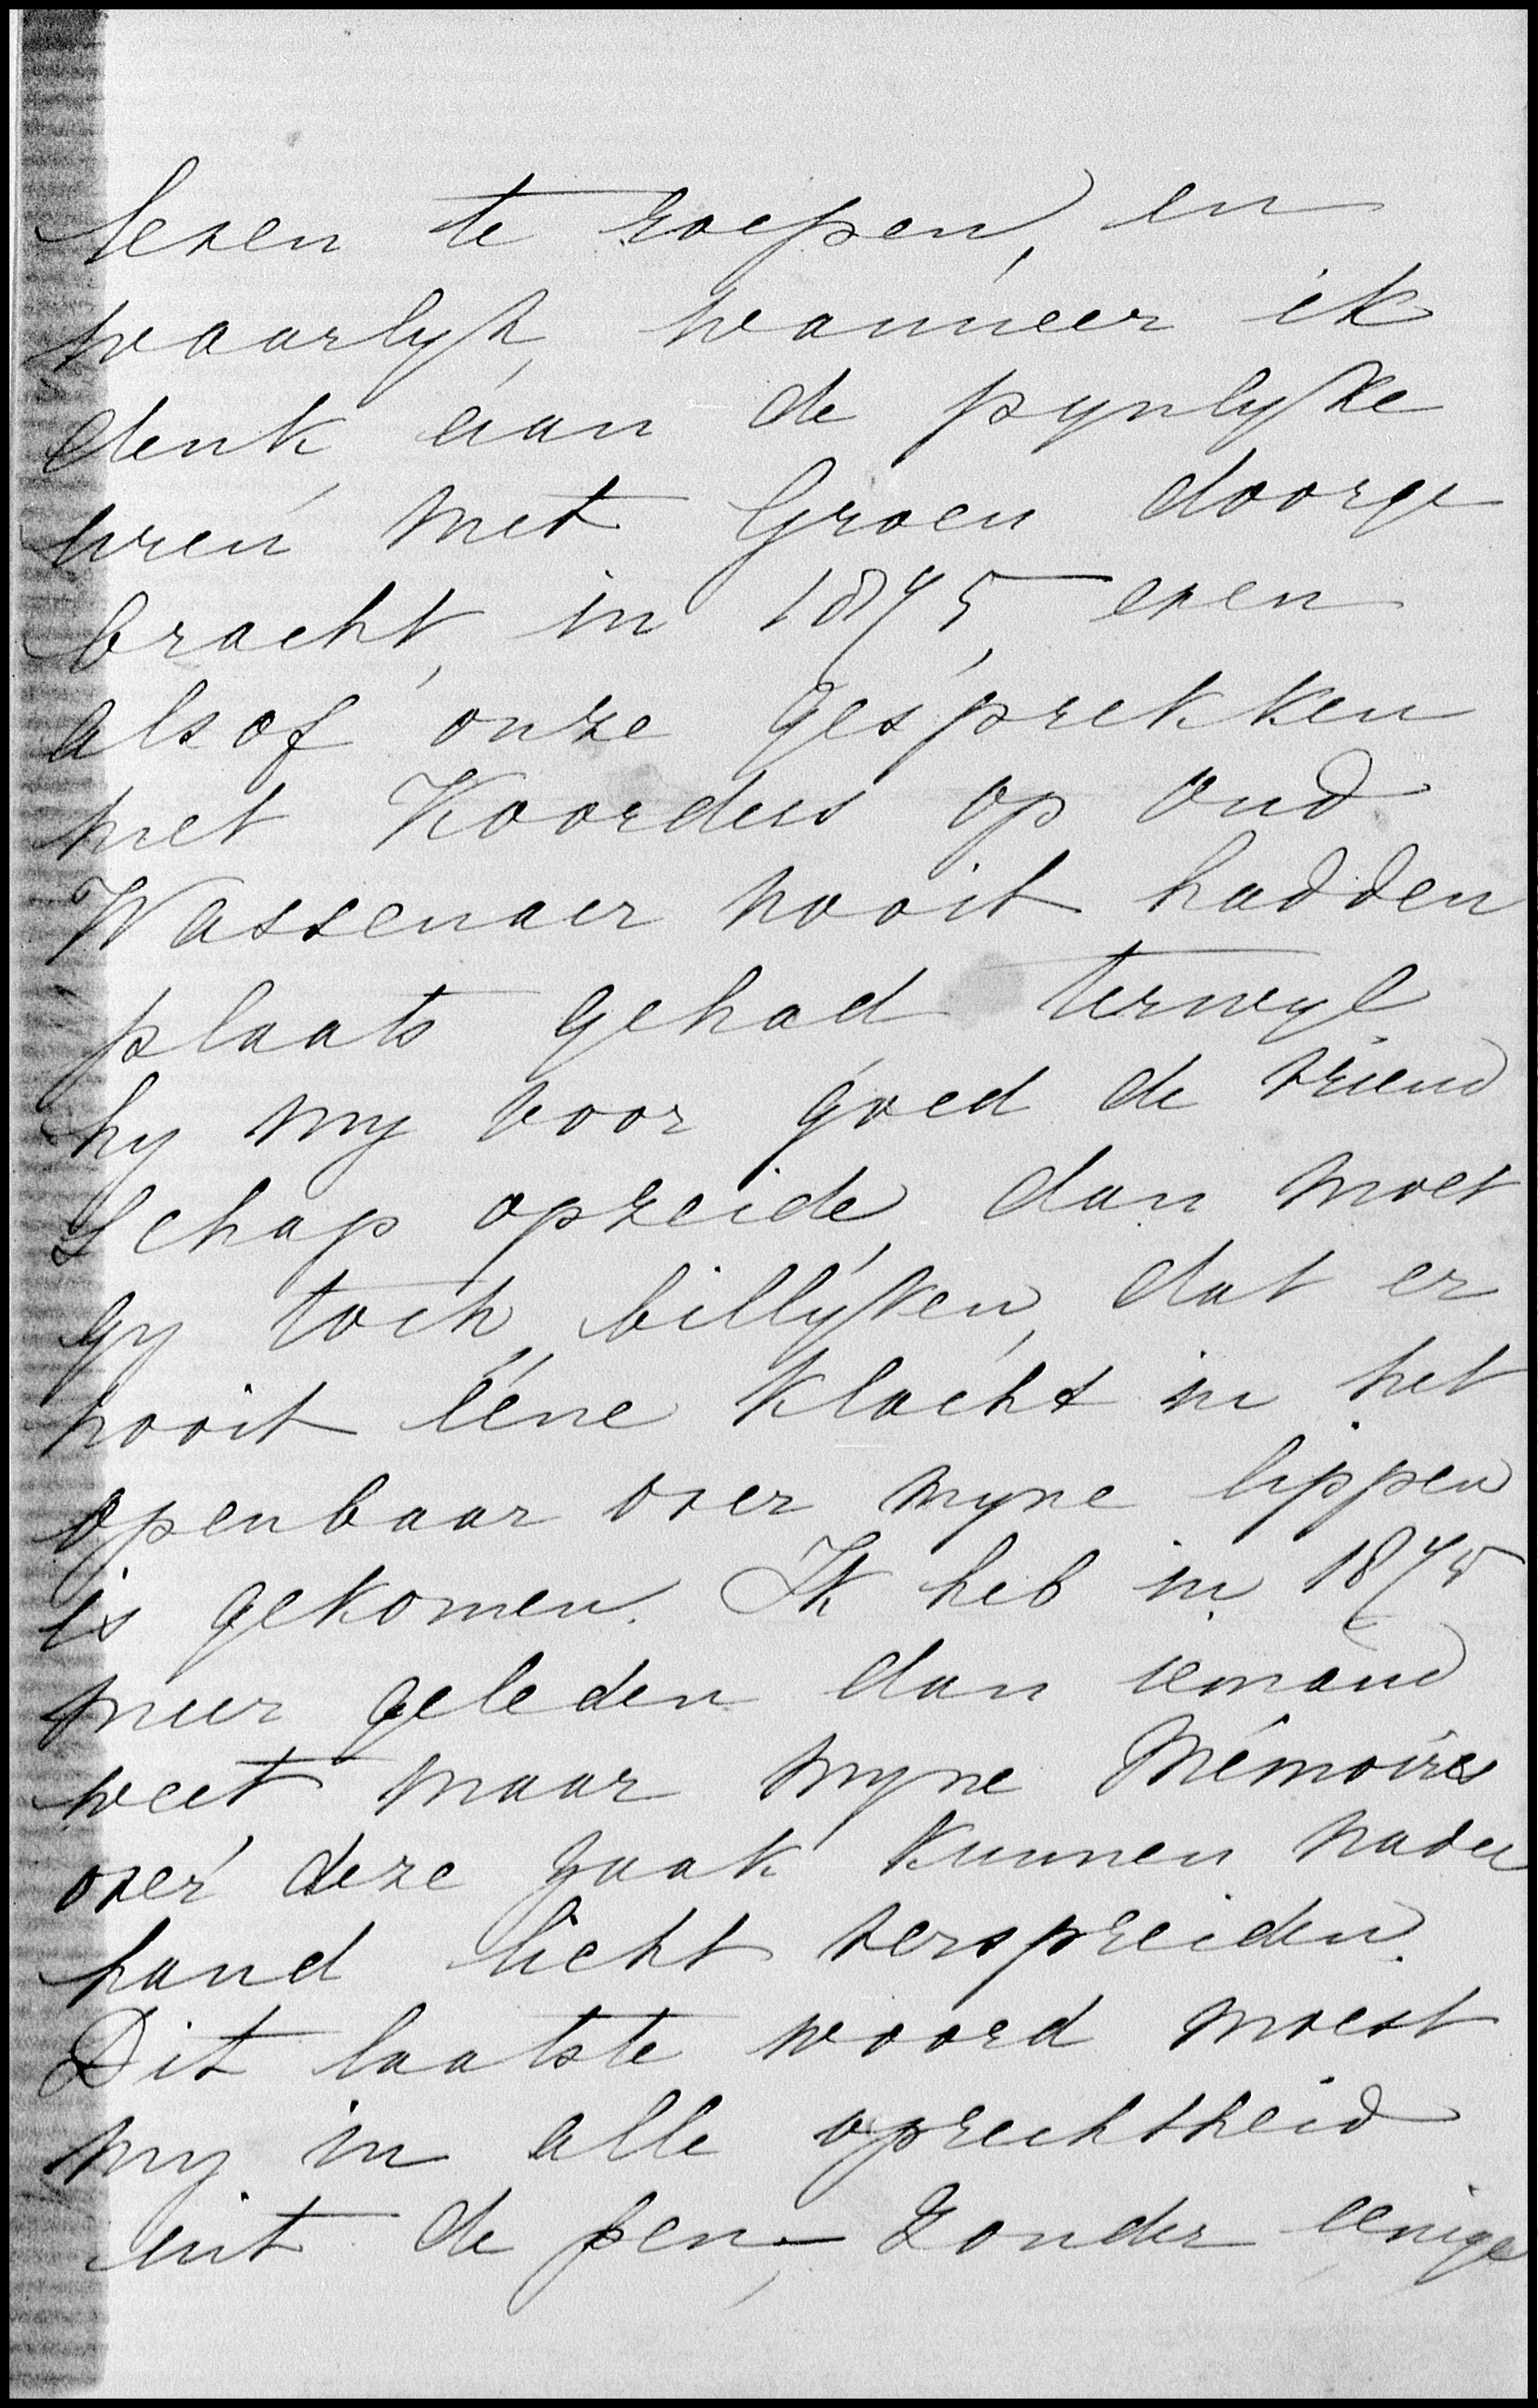 leven te roepen, en
waarlyk, wanneer ik
denk, aan de pynlyke
uren met Groen doorge
bracht, in 1875, even
alsof onze gesprekken
met Koorders op Oud
Wassenaer nooit hadden
plaats gehad terwyl
hy my voor goed de vriend
schap opzeide, dan moet
gy toch, billyken, dat er
nooit ééne klacht in het
openbaar over myne lippen
is gekomen. Ik heb in 1875
meer geleden dan iemand
weet maar myne Mémoires
over deze zaak kunnen nader
hand licht verspreiden.
Dit laatste woord moest
my in alle oprechtheid
uit de pen, – zonder eenige